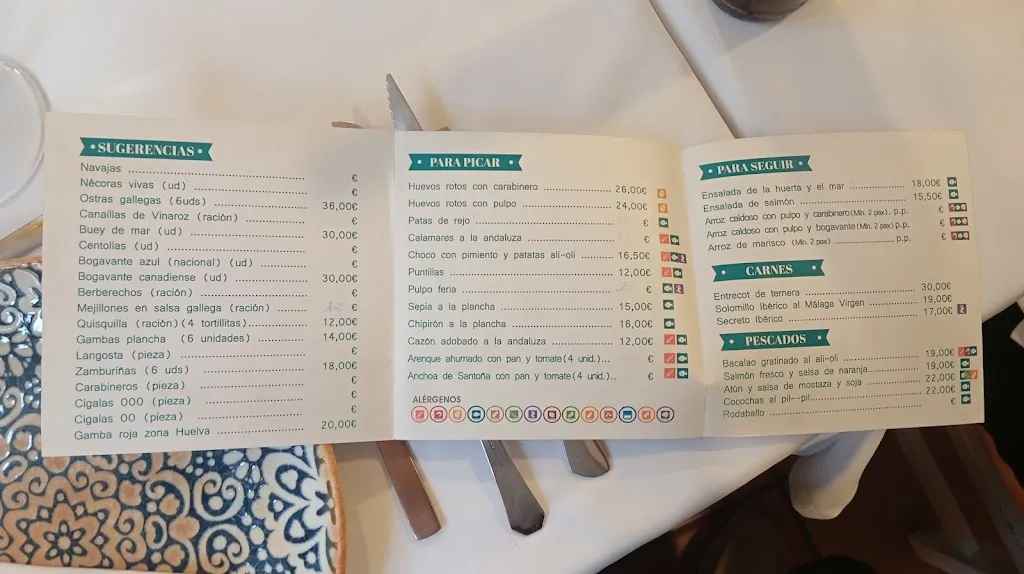 SUGERENCIAS
Navajas .......... €
Nécoras vivas (ud) .......... €
Ostras gallegas (6uds) .......... 36,00€
Canaíllas de Vinaroz (ración) .......... €
Buey de mar (ud) .......... 30,00€
Centollas (ud) .......... €
Bogavante azul (nacional) (ud) .......... €
Bogavante canadiense (ud) .......... 30,00€
Berberechos (ración) .......... €
Mejillones en salsa gallega (ración) .......... €
Quisquilla (ración)(4 tortillitas).......... 12,00€
Gambas plancha (6 unidades) .......... 14,00€
Langosta (pieza) .......... €
Zamburiñas (6 uds) .......... 18,00€
Carabineros (pieza) .......... €
Cigalas 000 (pieza) .......... €
Cigalas 00 (pieza) .......... €
Gamba roja zona Huelva .......... 20,00€
PARA PICAR
Huevos rotos con carabinero .......... 26,00€
Huevos rotos con pulpo .......... 24,00€
Patas de rejo .......... €
Calamares a la andaluza .......... €
Choco con pimiento y patatas ali-oli .......... 16,50€
Puntillas .......... 12,00€
Pulpo feria .......... €
Sepia a la plancha .......... 15,00€
Chipirón a la plancha .......... 16,00€
Cazón adobado a la andaluza .......... 12,00€
Arenque ahumado con pan y tomate(4 unid.)... €
Anchoa de Santoña con pan y tomate(4 unid.).. €
ALÉRGENOS
PARA SEGUIR
Ensalada de la huerta y el mar .......... 18,00€
Ensalada de salmón .......... 15,50€
Arroz caldoso con pulpo y carabinero(Min. 2 pax). p.p. €
Arroz caldoso con pulpo y bogavante(Min. 2 pax) p.p. €
Arroz de marisco (Min. 2 pax) .......... p.p. €
CARNES
Entrecot de ternera .......... 30,00€
Solomillo Ibérico al Málaga Virgen .......... 19,00€
Secreto Ibérico .......... 17,00€
PESCADOS
Bacalao gratinado al ali-oli .......... 19,00€
Salmón fresco y salsa de naranja.......... 19,00€
Atún y salsa de mostaza y soja .......... 22,00€
Cocochas al pil--pil.......... 22,00€
Rodaballo .......... €